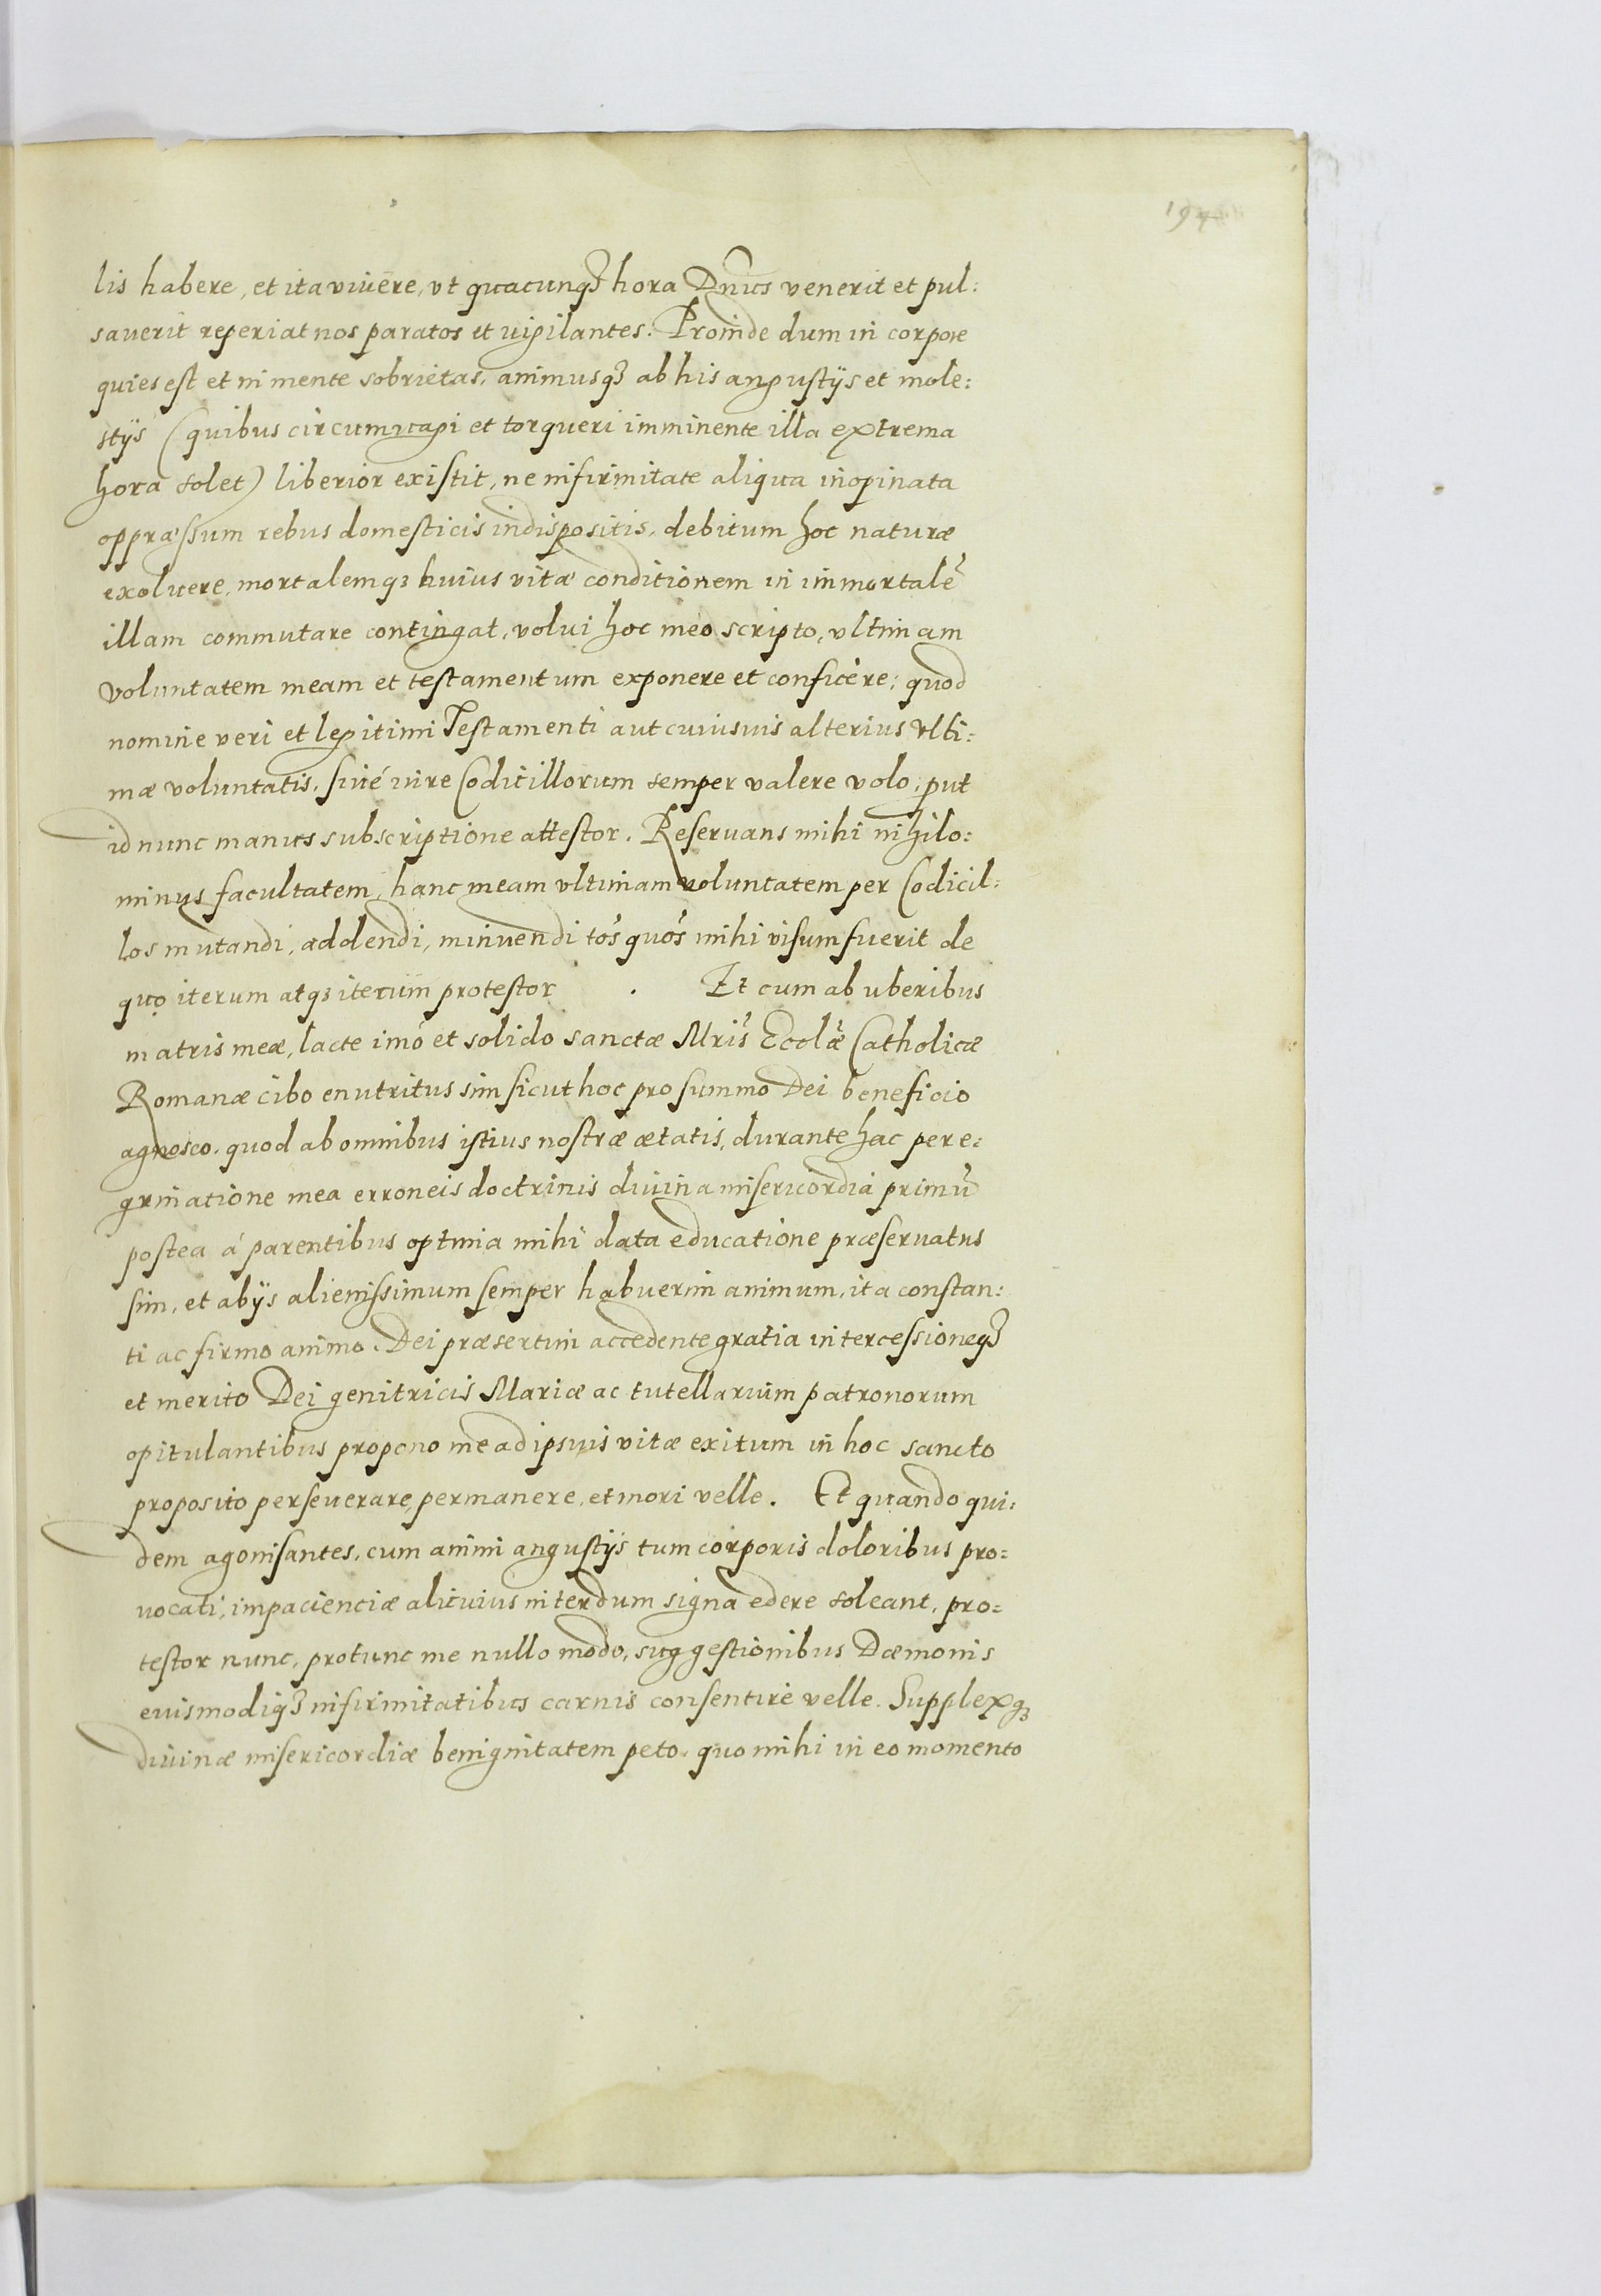 lis habere, et ita viuere, vt quacunq3 hora Dnus venerit et pul:
saverit reperiat nos paratos et vigilantes. Proinde dum in corpore
quies est et in mente sobrietas, animusq3 ab his angustijs et mole:
stijs (quibus circum et torqueri imminente illa extrema
hora solet) liberior existit, ne infirmitate aliqua inopinata
oppræssum rebus domesticis indispositis, debitum hoc naturæ
exoluere, mortalemq3 huius vitæ conditionem in immortalē
illam commutare contingat, volui hoc meo scripto, vltimam
voluntatem meam et testamentum exponere et conficere; quod
nomine veri et legitimi Testamenti aut cuiusuis alterius vlti:
mæ voluntatis, siué iure Codicillorum semper valere volo, put
id nunc manus subscriptione attestor. Reseruans mihi nihilo:
minus facultatem, hanc meam vltimam voluntatem per Codicil:
los mutandi, addendi, minuendi tōs quōs mihi visum fuerit de
quo iterum atq3 iterum protestor . Et cum ab uberibus
matris meæ, lacte imó et solido sanctæ Mrīs Ecclǣ Catholicæ
Romanæ cibo enutritus sim sicut hoc pro summo Dei beneficio
agnosco, quod ab omnibus istius nostræ ætatis, durante hac pere:
grinatione mea erroneis doctrinis diuina misericordia primū
postea á parentibus optima mihi data educatione præseruatus
sim, et ab ijs alienissimum semper habuerim animum, ita constan:
ti ac firmo animo, Dei præsertim accedente gratia intercessioneq3
et merito Dei genitricis Mariæ ac tutellarium patronorum
opitulantibus propono me ad ipsuis vitæ exitum in hoc sancto
proposito perseuerare, permanere, et mori velle. Et quando qui:
dem agonisantes, cum animi angustijs tum corporis doloribus pro:
uocati, impacienciæ alicuius interdum signa edere soleant, pro:
testor nunc, protunc me nullo modo, suggestionibus Dæmonis
euismodiq3 infirmitatibus carnis consentire velle. Supplexq3
diuinæ misericordiæ benignitatem peto, quo mihi in eo momento